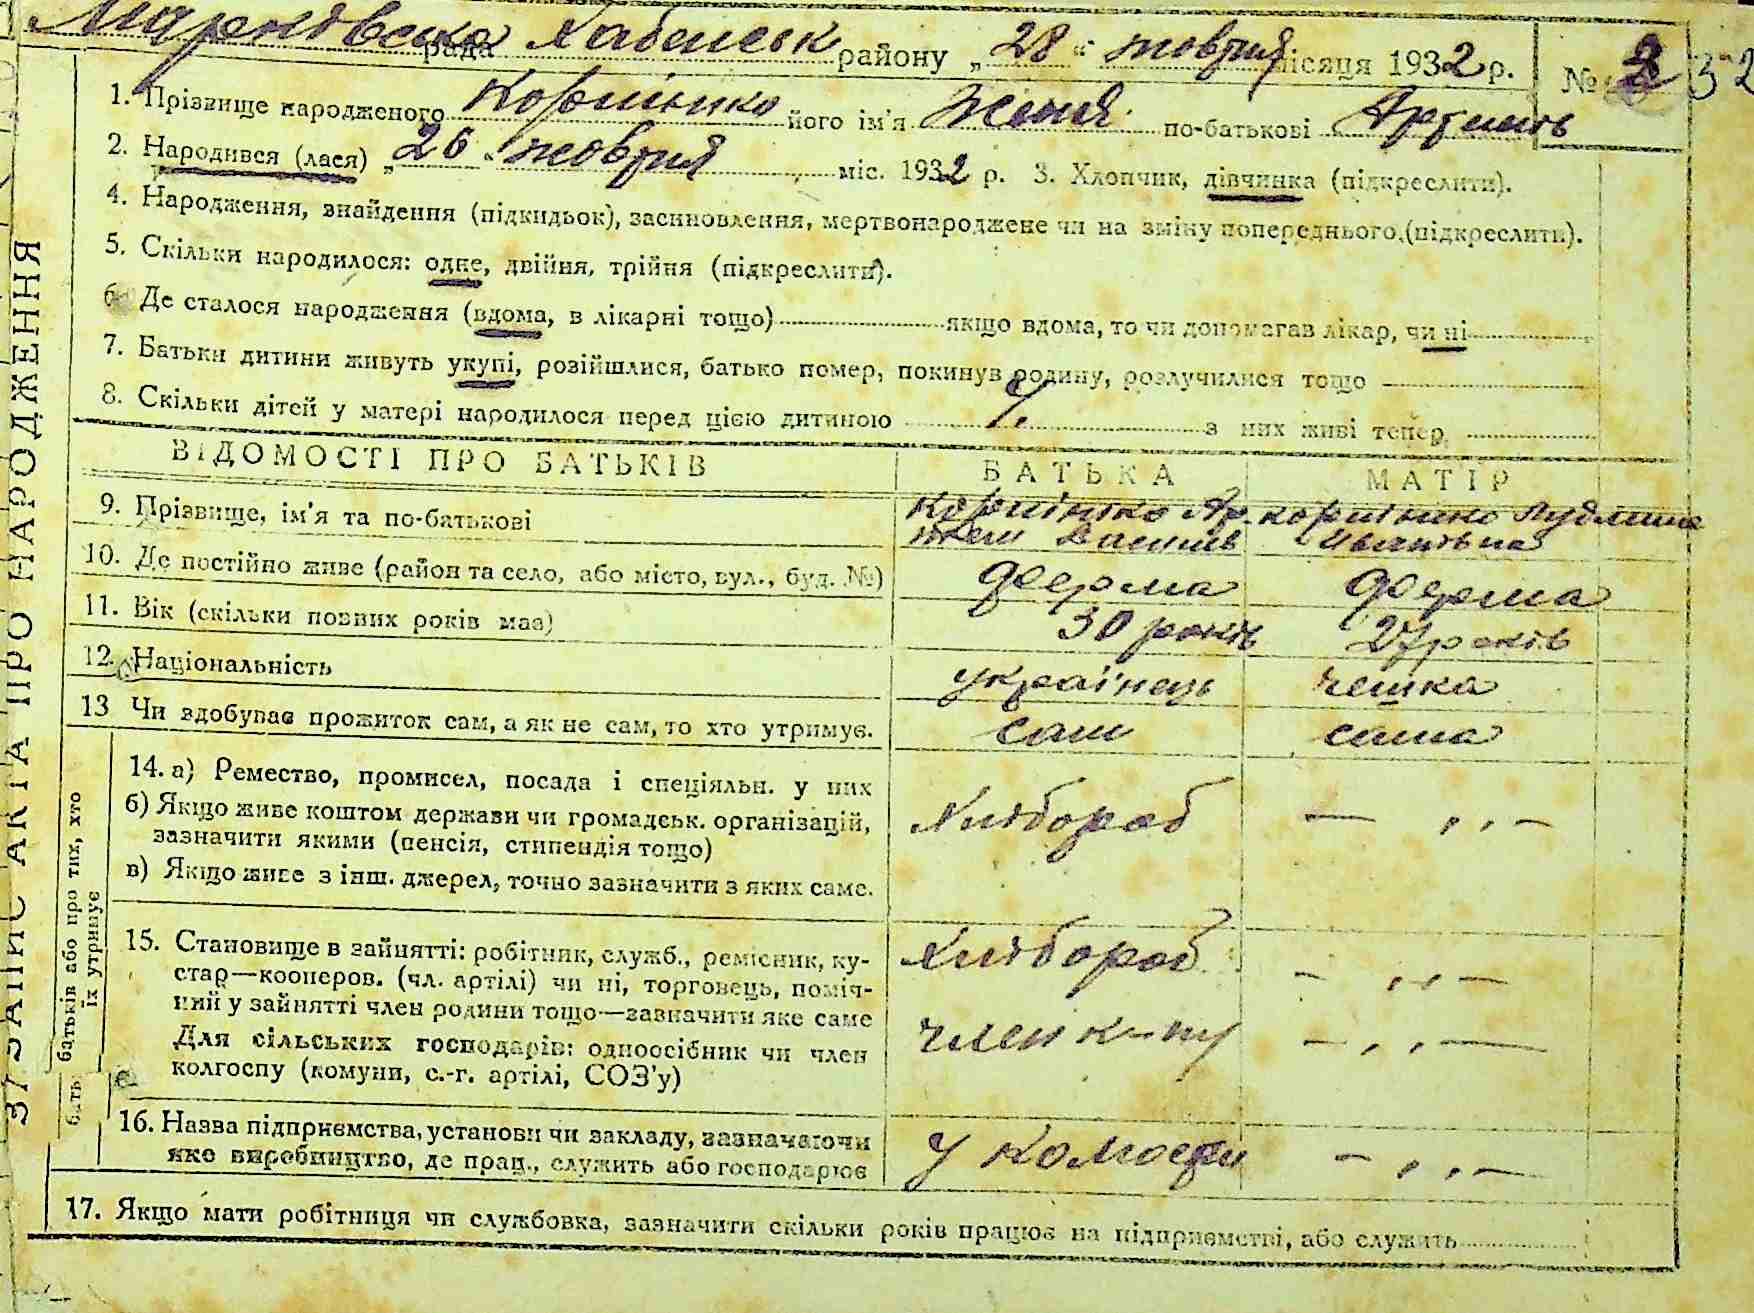 рада Хабенськ району „28“ жовтня місяця 1932 р. №
1. Прізвище народженого його ім'я Женя по-батькові
2. Народився (лася) „26“ жовтня міс. 1932 р. 3. Хлопчик, дівчинка (підкреслити).
4. Народження, знайдення (підкидьок), засиновлення, мертвонароджене чи на зміну попереднього,(підкреслити).
5. Скільки народилося: одне, двійня, трійня (підкреслити).
6. Де сталося народження (вдома, в лікарні тощо) якщо вдома, то чи допомагав лікар, чи ні
7. Батьки дитини живуть укупі, розійшлися, батько помер, покинув родину, розлучилися тощо
8. Скільки дітей у матері народилося перед цією дитиною з них живі тепер
ВІДОМОСТІ ПРО БАТЬКІВ БАТЬКА МАТІР
9. Прізвище, ім'я та по-батькові
10. Де постійно живе (район та село, або місто, вул., буд. №) ферма ферма
11. Вік (скільки повних років має) 30 років 27 років
12. Національність українець чешка
13 Чи здобуває прожиток сам, а як не сам, то хто утримує. сам сама
14. а) Ремество, промисел, посада і спеціяльн. у них
б) Якщо живе коштом держави чи громадськ. організацій, зазначити якими (пенсія, стипендія тощо) Хлібороб — ,, —
в) Якщо живе з інш. джерел, точно зазначити з яких саме.
15. Становище в зайнятті: робітник, служб., ремісник, ку- Хлібороб — ,, —
стар—кооперов. (чл. артілі) чи ні, торговець, поміч-
ний у зайнятті член родини тощо—зазначити яке саме
Для сільських господарів: одноосібник чи член член — ,, —
колгоспу (комуни, с.-г. артілі, СОЗ'у)
16. Назва підприємства, установи чи закладу, зазначаючи у колгоспі — ,, —
яке виробництво, де прац., служить або господарює
17. Якщо мати робітниця чи службовка, зазначити скільки років працює на підприємстві, або служить
ЗАПИС АКТА ПРО НАРОДЖЕННЯ
батьків або про тих, хто
їх утримує